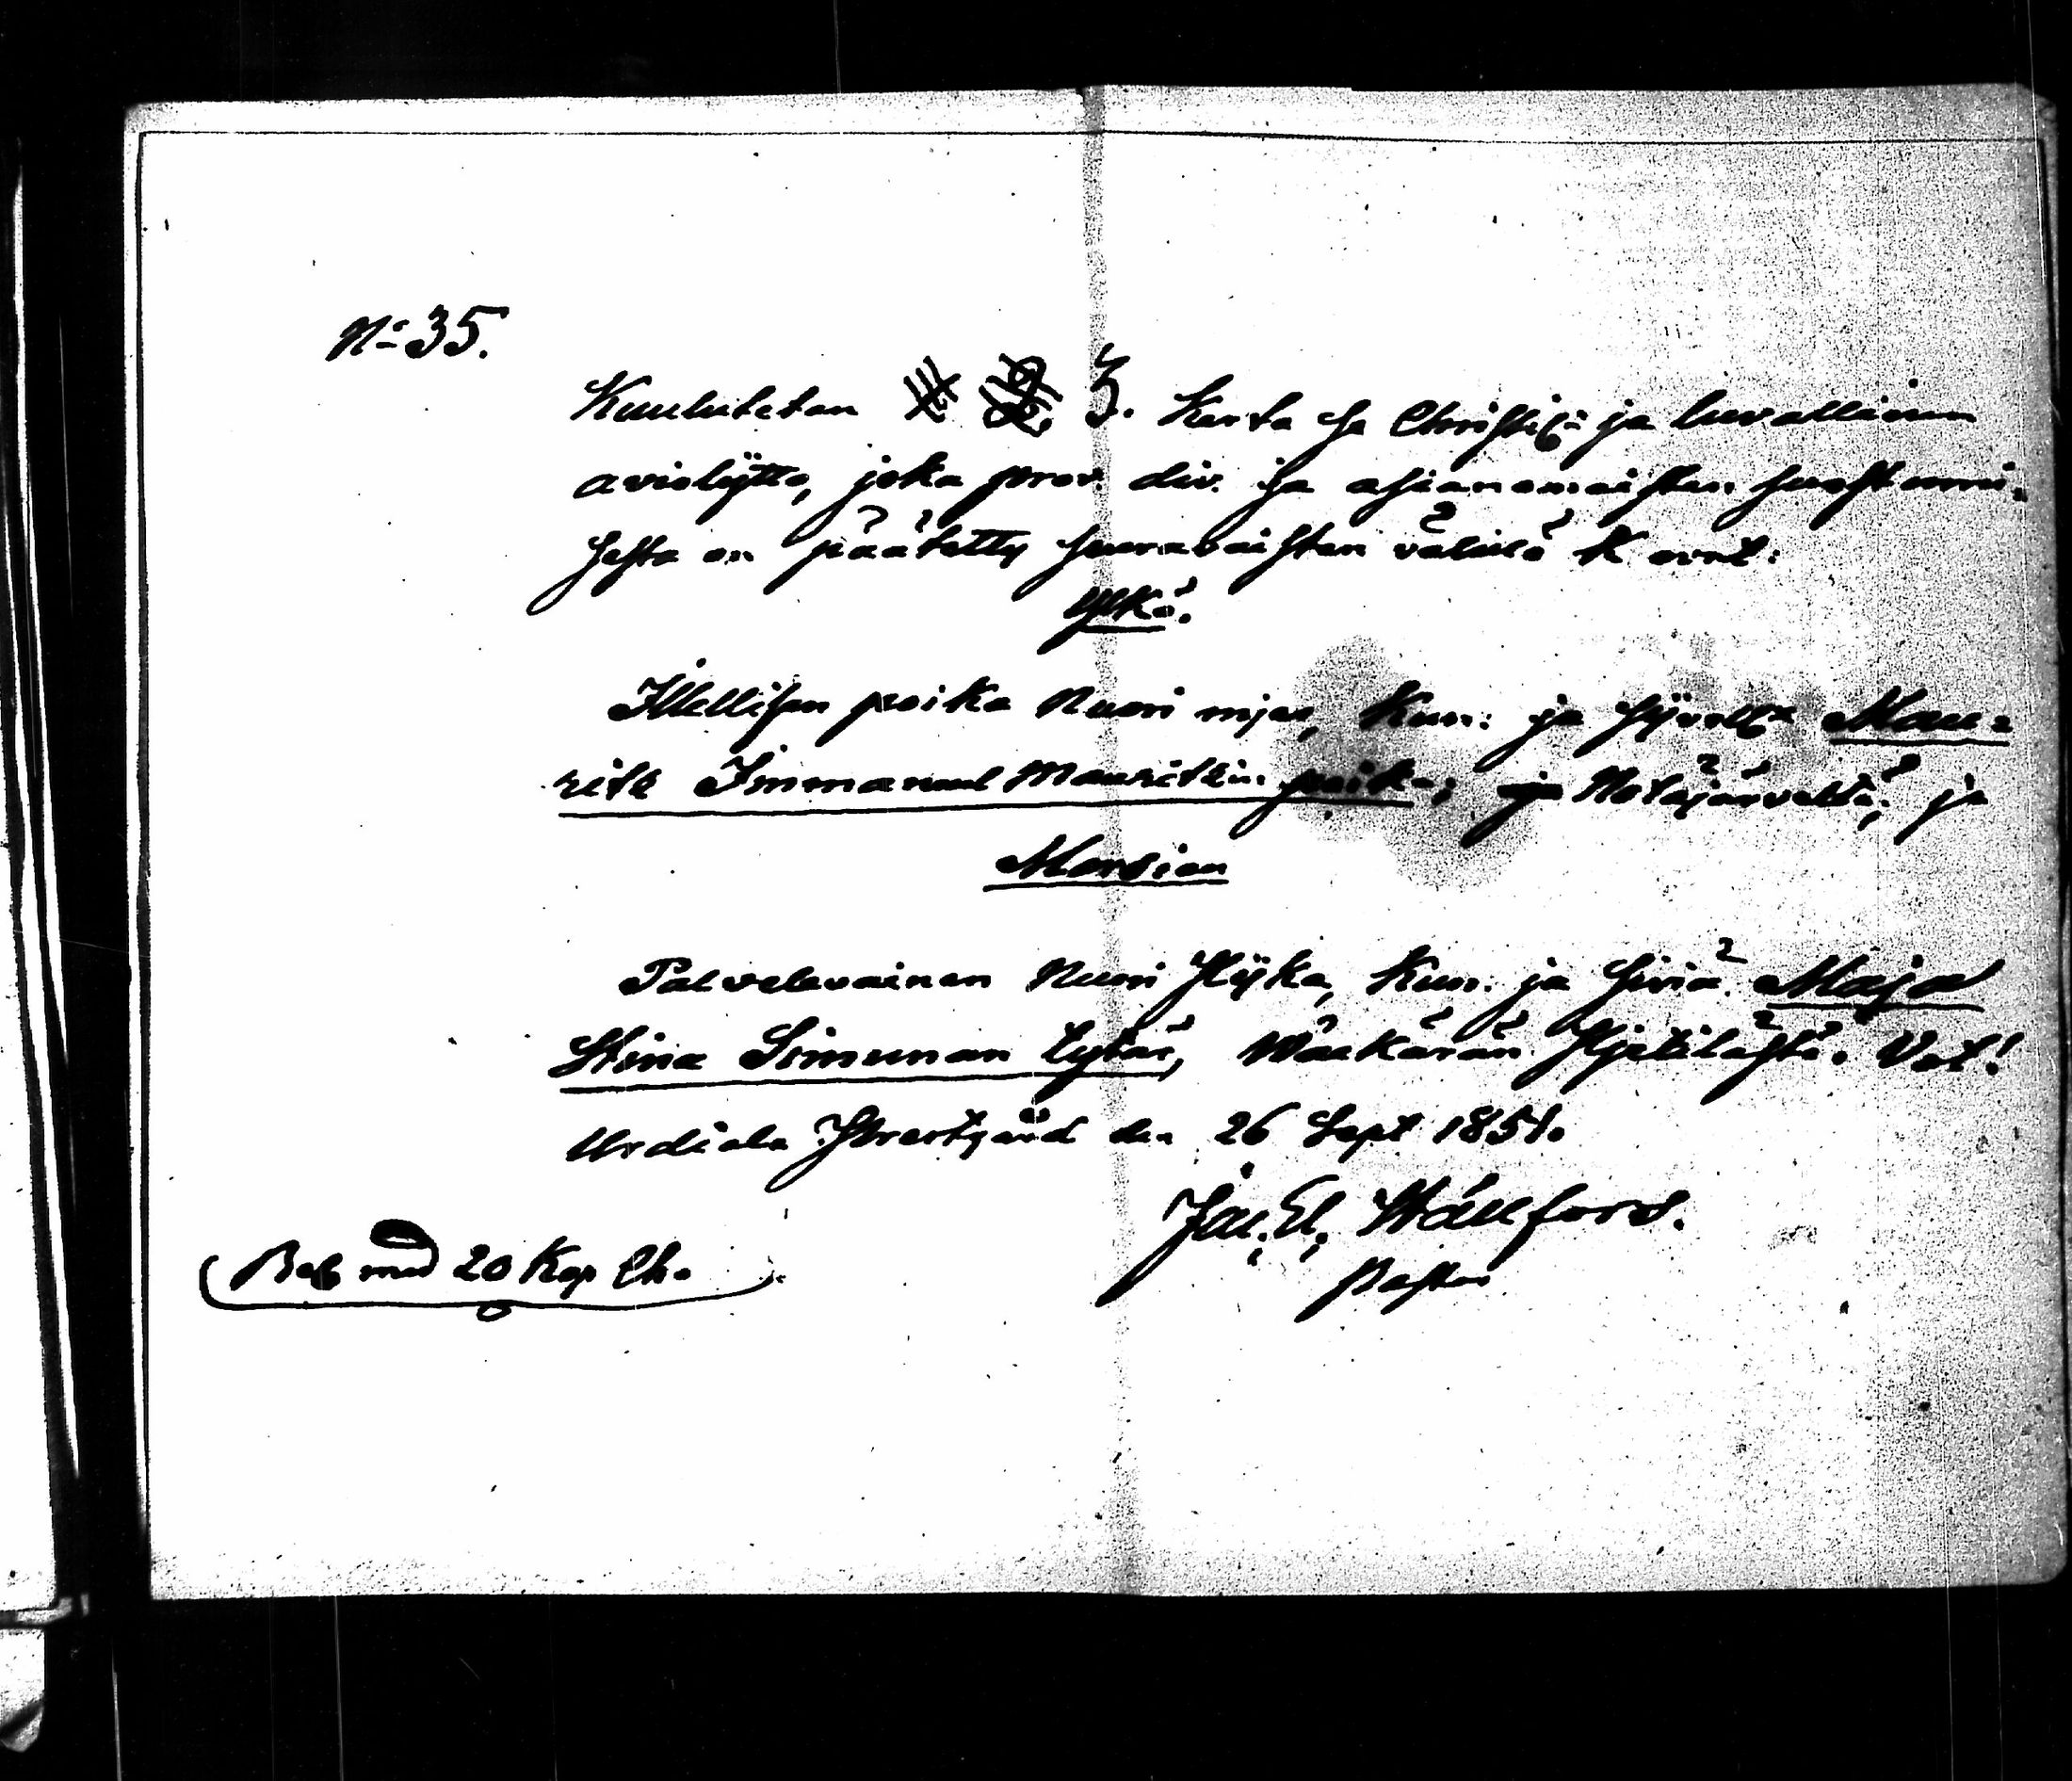 No 35.
Kuulutetan 3. Kerta se Christil: ja luvallinen
avioliytto, joka prov. div. ja asianomaisten suostumi-
sesta on päätetty seuravaisten välillä K ornt:
Yljkä.
Itellisen poika Nuori mjes, Kun: ja Mau-
ritz Immanuel Mauritzin poika, Notsjärveldä, ja
Morsian
Palvelevainen Nuori Pijka, Kun. ja Siviä Maja
Stina Simunan tytär, Wäkärän Hjetilästä. Vot!
Urdiala Prestgård den 26 Sept 1854.
Jac. El. Wällfors.
Pastor
Bet med 20 Kop